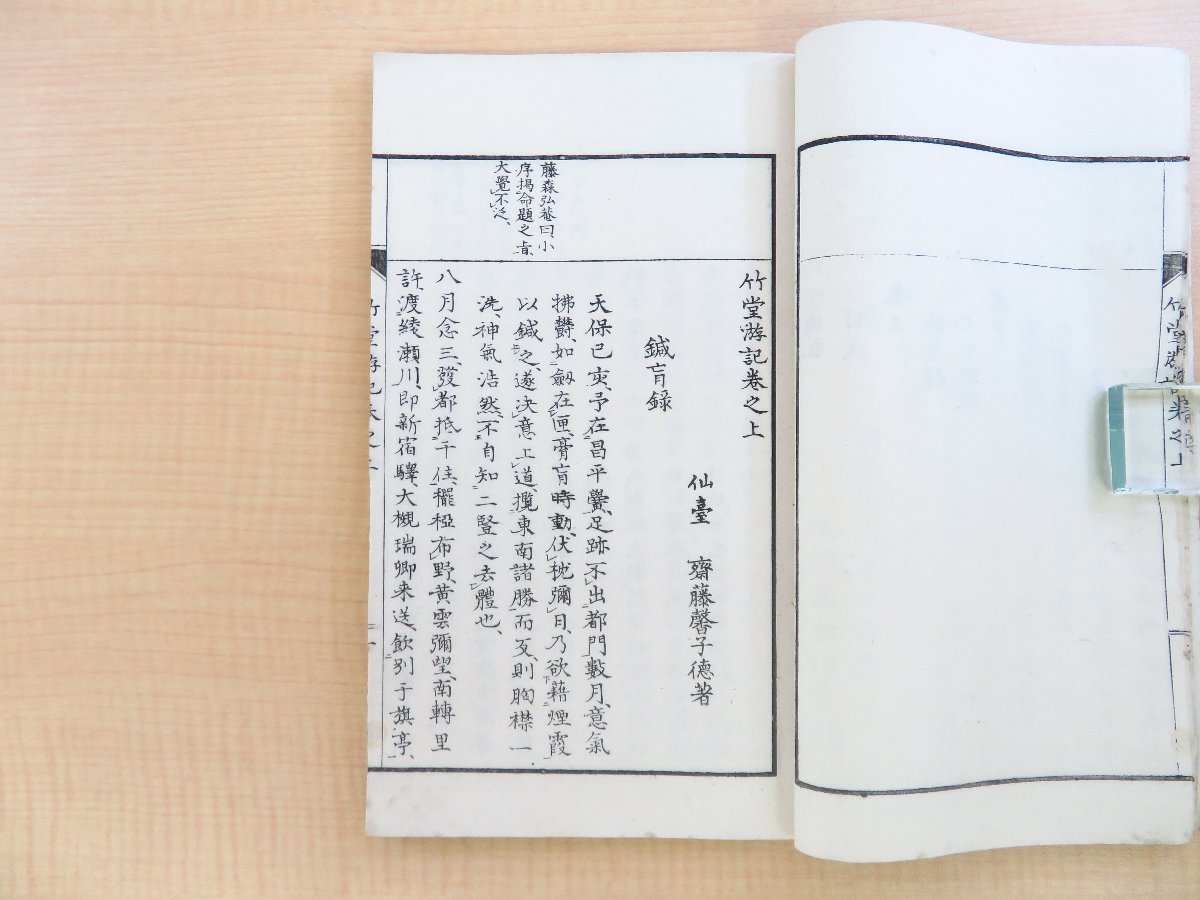 竹堂游記卷之上
仙臺　齋藤馨子德著
鍼肓錄
天保己亥、予在昌平黌、足跡不出都門數月、意氣
拂欝、如劔在匣、膏肓時動、伏枕彌日、乃欲藉煙霞
以鍼之、遂決意上道、攬東南諸勝而反、則胸襟一
洗、神氣浩然、不自知二豎之去體也、
八月念三、發都抵千住、䆉稏布野、黃雲彌望、南轉里
許、渡綾瀨川、即新宿驛、大槻瑞卿来送、飲別于旗亭、
藤森弘菴曰、小
序揭命題之旨、
大覺不泛、
竹堂游記卷之上